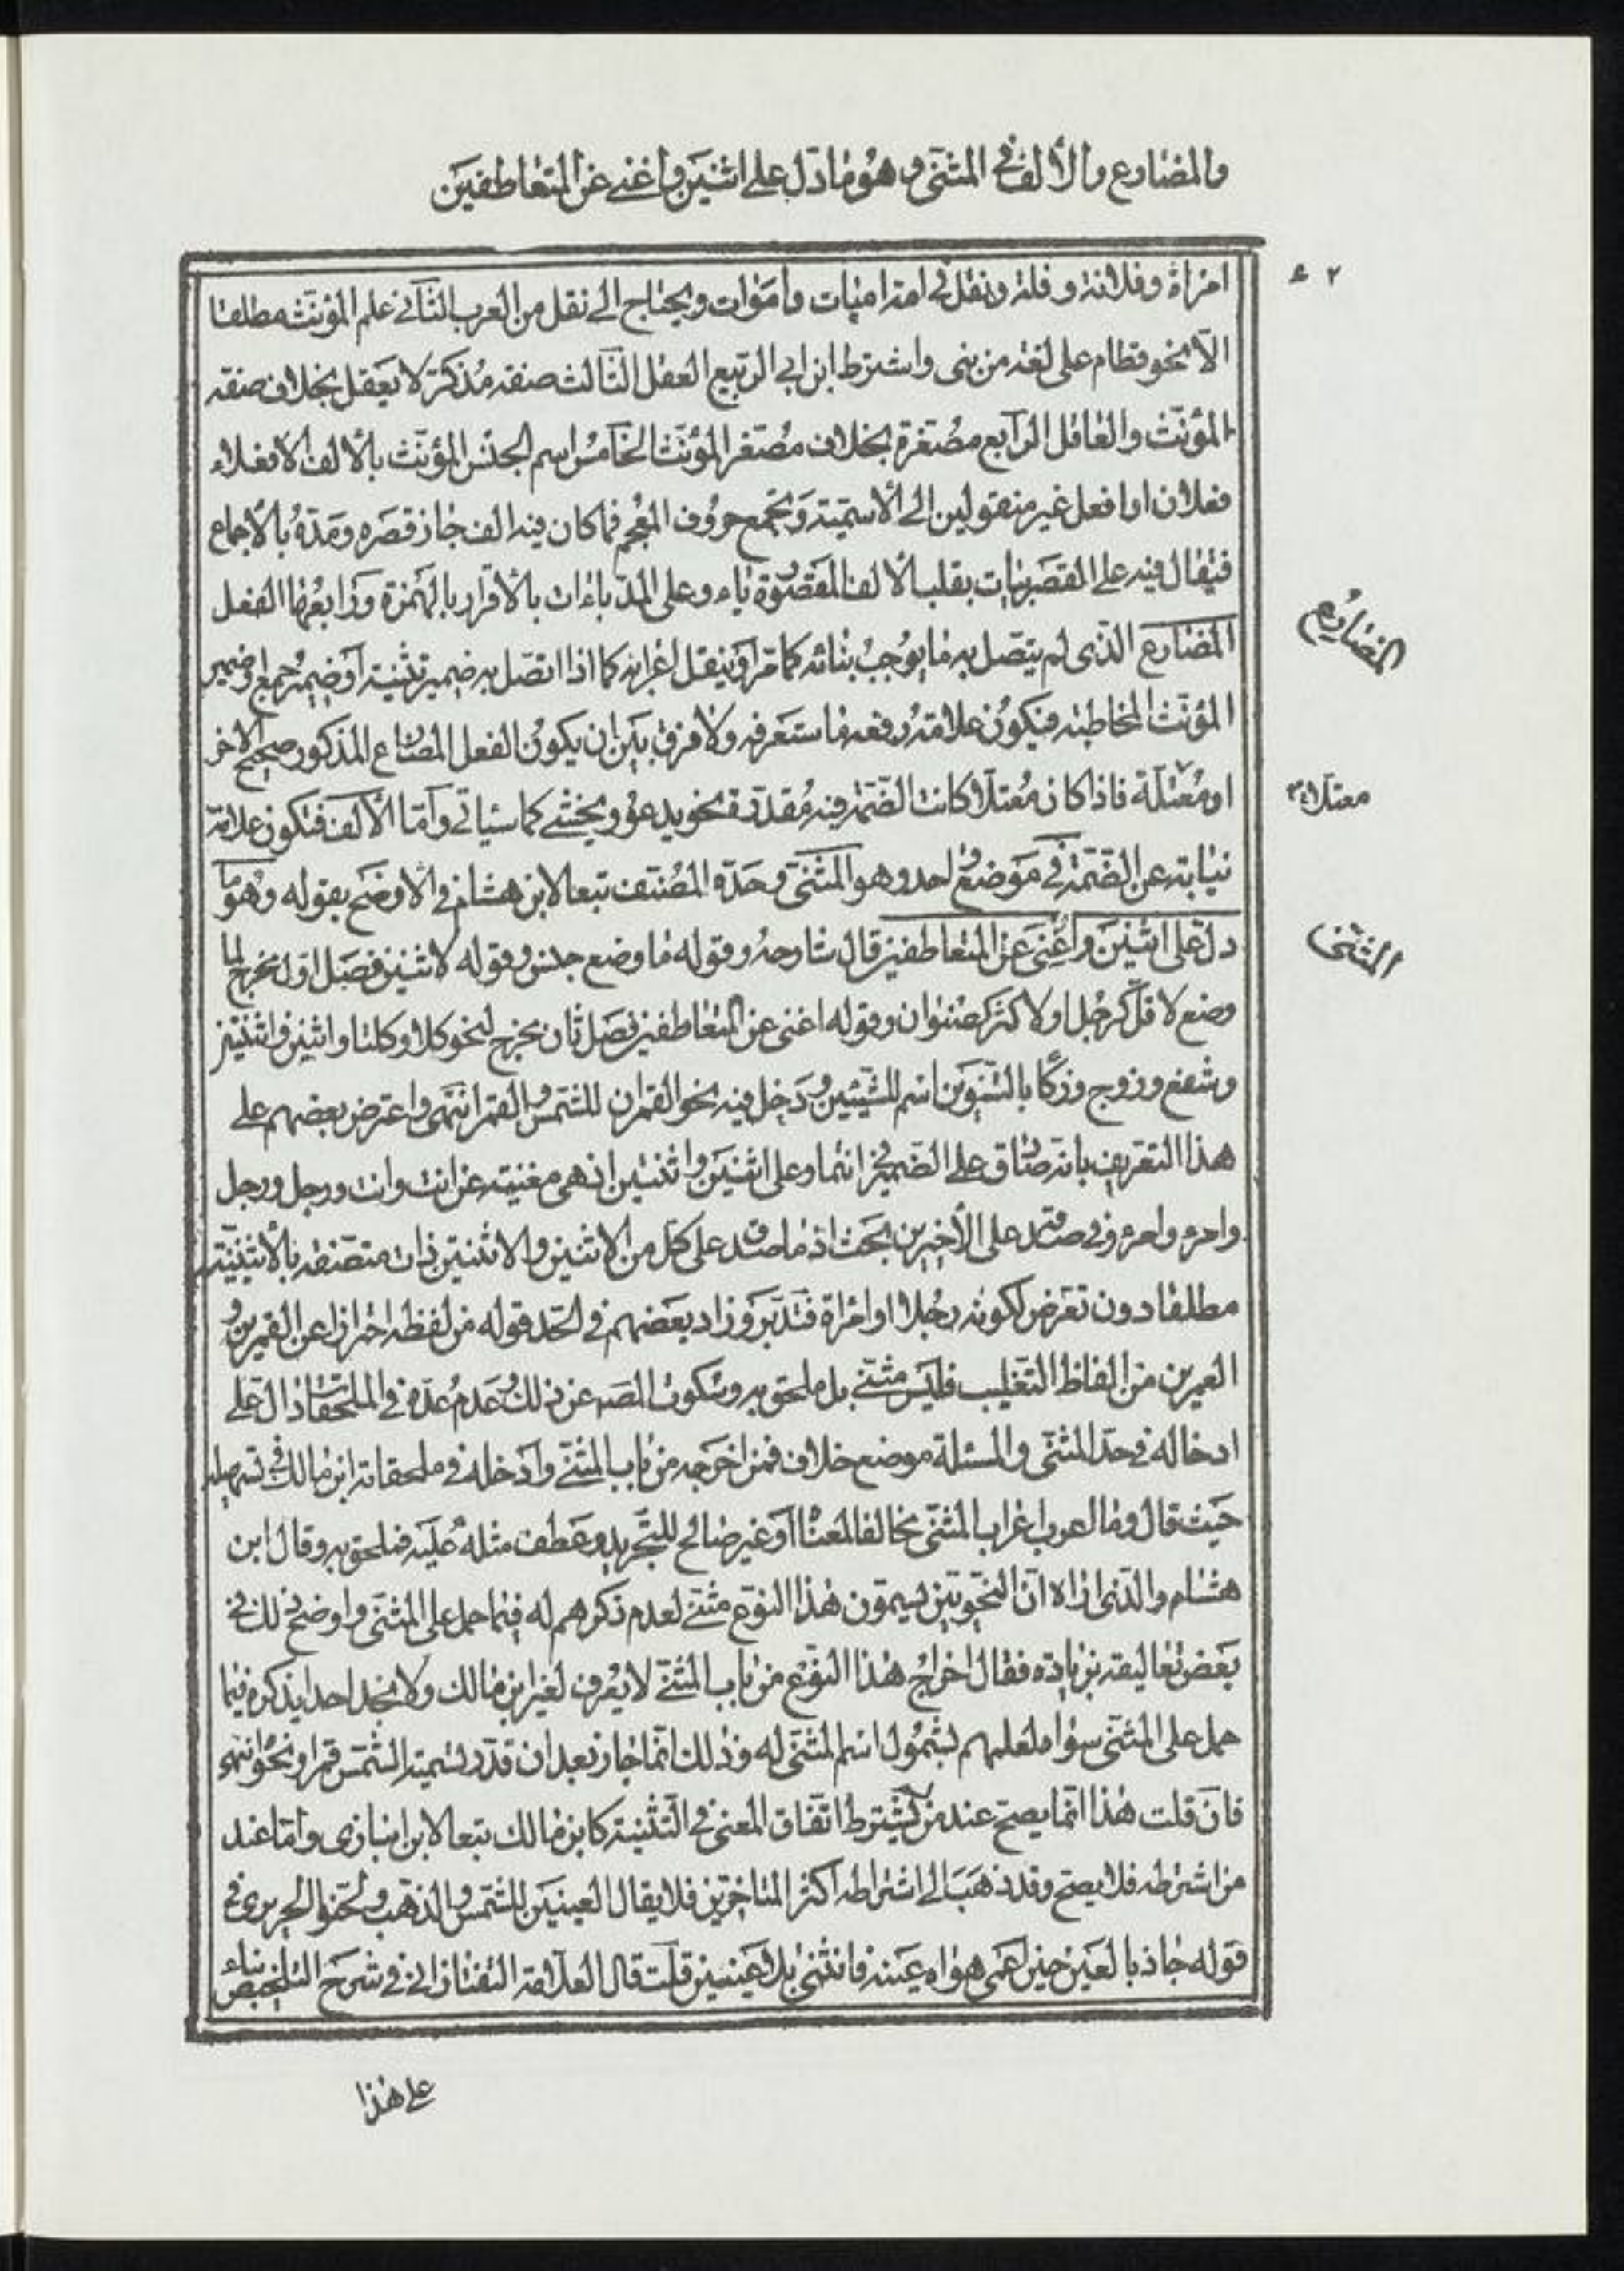 والمضارع والألف في المثنى وهو ما دل على اثنين واغنى عن المتعاطفين
٢ ع
امرأة وفلانة وفلة ونقل في امة اميات واموات ويحتاج الى نقل من العرب الثاني علم المؤنث مطلقا
الا نحو قطام على لغة من بنى واشترط ابن ابي الربيع العقل الثالث صفة مذكر لا يعقل بخلاف صفة
المؤنث والعاقل الرابع مصغرة بخلاف مصغر المؤنث الخامس اسم الجنس المؤنث بالألف الا فعلاء
فعلان او افعل غير منقولين الى الاسمية وتجمع حروف المعجم فما كان فيه الف جاز قصره ومده بالاجماع
فيقال فيه على القصر بيات بقلب الألف المقصورة ياء وعلى المد باءات بالاقرار بالهمزة ورابعها الفعل
المضارع
المضارع الذى لم يتصل به ما يوجب بنائه كما مر او ينقل اعرابه كما اذا اتصل به ضمير تثنية او ضمير جمع او ضمير
المؤنث المخاطبة فيكون علامة رفعه ما ستعرفه ولا فرق بين ان يكون الفعل المضارع المذكور صحيح الاخر
معتلا
او معتلة فاذا كان معتلا كانت الضمة فيه مقدرة نحو يدعو ويخشى كما سيأتي وأما الألف فتكون علامة
نيابة عن الضمة في موضع واحد وهو المثنى وحده المصنف تبعا لابن هشام في الاوضح بقوله وهو ما
المثنى
دل على اثنين واغنى عن المتعاطفين قال شارحه وقوله ما وضع جنس وقوله لاثنين فصل اول يخرج لما
وضع لاقل كرجل او لاكثر كصنوان وقوله اغنى عن المتعاطفين فصل ثان يخرج لنحو كلا وكلتا واثنين واثنتين
وشفع وزوج وزكا بالتنوين اسم للشيئين ودخل فيه نحو القمران للشمس والقمر انتهى واعترض بعضهم على
هذا التعريف بانه صادق على الضمير في انتما وعلى اثنين واثنتين اذ هى مغنية عن انت وانت ورجل ورجل
وامرءة وامرءة وفي صدقه على الأخيرين بحث اذ ما صدق على كل من الاثنين والاثنتين ذات متصفة بالأثنينية
مطلقا دون تعرض لكونه رجلا او امرأة فتدبر وزاد بعضهم في الحد قوله من لفظه احترازا عن القمرين و
العمرين من الفاظ التغليب فليس مثنى بل ملحق به وسكوت المصـ عن ذلك وعدم عده في الملحقات دال على
ادخاله في حد المثنى والمسئلة موضع خلاف فمن اخرجه من باب المثنى وادخله في ملحقاته ابن مالك في تسهيله
حيث قال وما اعرب اعراب المثنى مخالفا لمعناه او غير صالح للتجريد وعطف مثله عليه فملحق به وقال ابن
هشام والذى اراه ان النحويين يسمون هذا النوع مثنى لعدم ذكرهم له فيما حمل على المثنى واوضح ذلك في
بعض تعاليقه بزيادة فقال اخراج هذا النوع من باب المثنى لا يعرف لغير ابن مالك ولا نجد احدا يذكره فيما
حمل على المثنى سواه لعلمهم بشمول اسم المثنى له وذلك انما جاز بعد ان قدر تسمية الشمس قمرا ونحو انتهى
فان قلت هذا انما يصح عند من لا يشترط اتفاق المعنى في التثنية كابن مالك تبعا لابن انبارى وأما عند
من اشترطه فلا يصح وقد ذهب الى اشتراطه اكثر المتاخرين فلا يقال العينين للشمس والذهب ولحنوا الحريرى في
قوله جاذ بالعين حين اعمى هواه عينه فانثنى بلا عينين قلت قال العلامة التفتازاني في شرح التلخيص بناء
على هذا